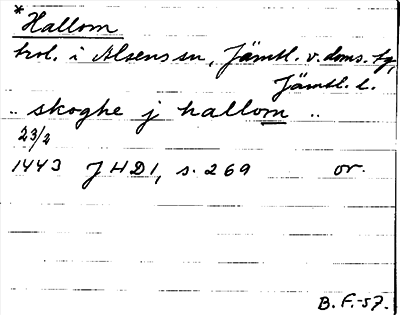 * Hallom
trol. i Alsens sn, Jämtl. v. doms. tg,
Jämtl. l.
.. skoghe j hallom ..
23/2
1443 JHD1, s. 269 or.
B. F.-57.